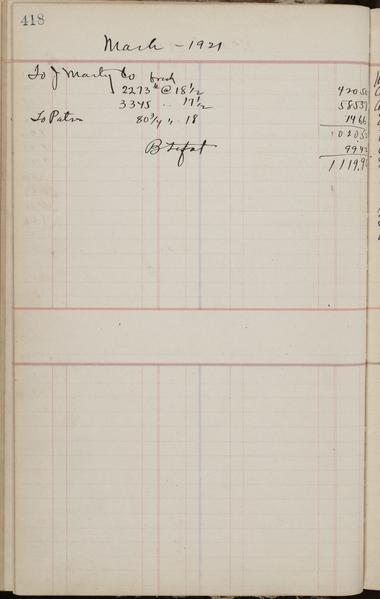 418
March - 1921
To J Marty Co
2273 lb @ 18 1/2 420 50
3345 " 17 1/2 585 37
To Patrn 80 3/4 " 18 14 66
1020 53
B Lefat 99 43
1119,9